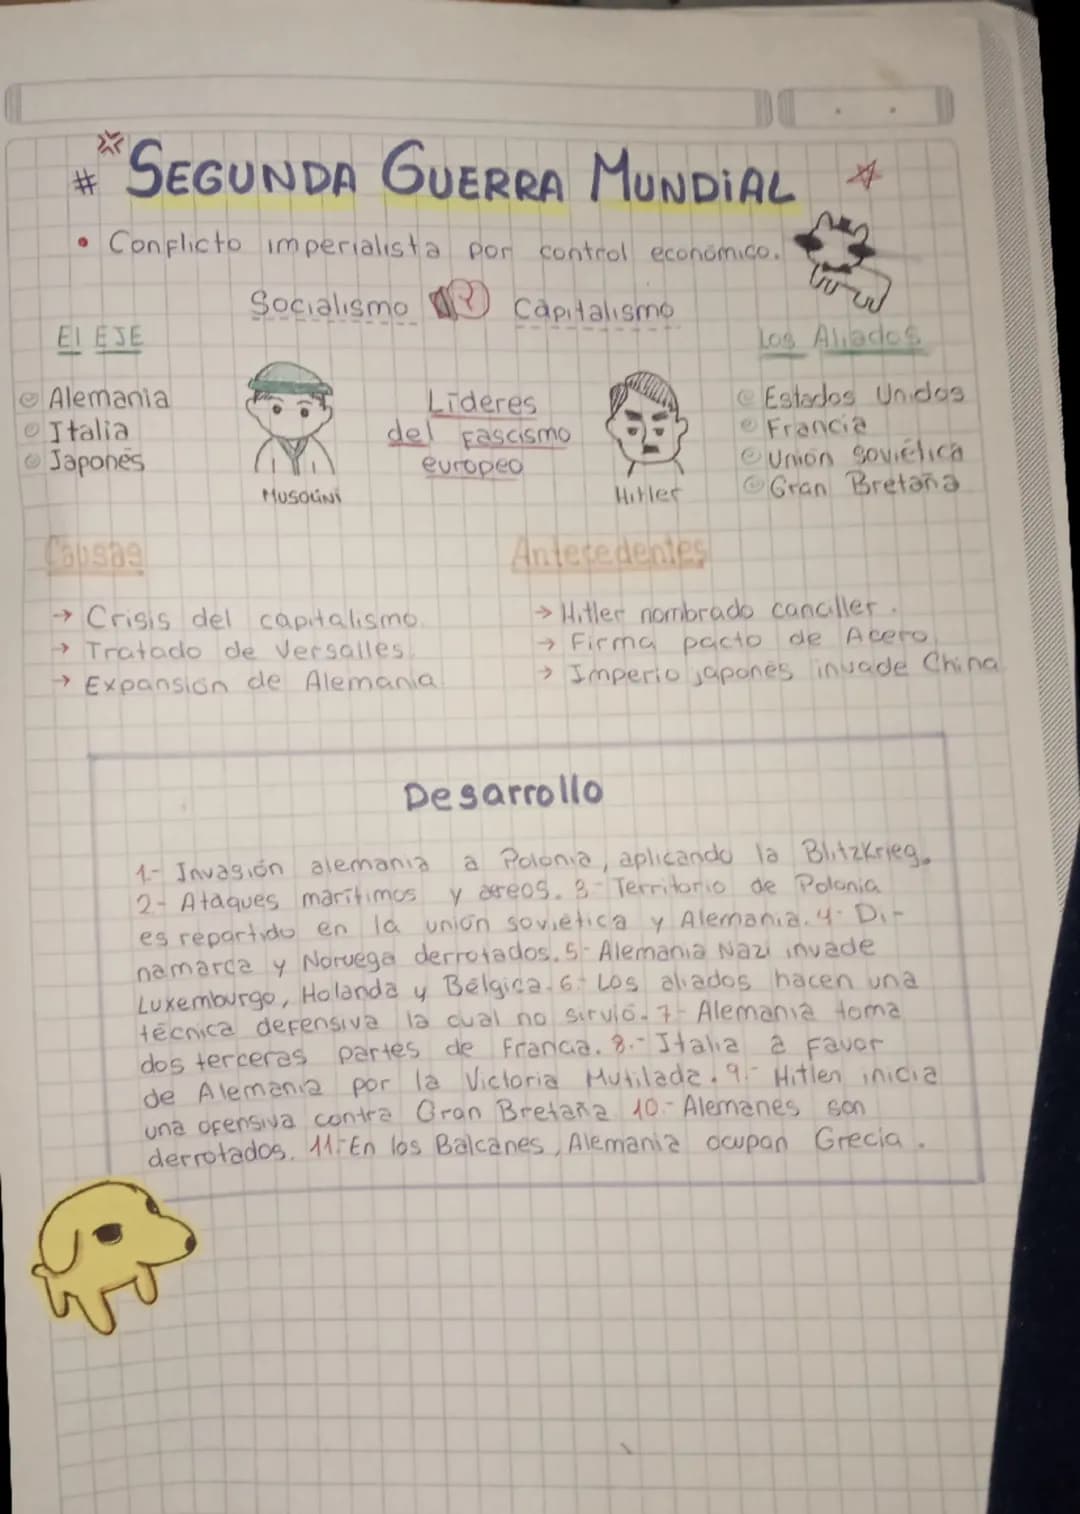 # SEGUNDA GUERRA MUNDiAL
• Conflicto imperialista por control económico.
Socialismo Capitalismo
El EJE
Los Aliados
Alemania
Italia
Japonés
MUSOLiNi
Líderes
del Fascismo
europeo
Hitler
Estados Unidos
Francia
Unión soviética
Gran Bretaña
Causas
→ Crisis del capitalismo.
→ Tratado de Versalles.
→ Expansión de Alemania.
Antecedentes
→ Hitler nombrado canciller.
→ Firma pacto de Acero.
→ Imperio japonés invade China
Desarrollo
1.- Invasión alemania a Polonia, aplicando la Blitzkrieg.
2- Ataques marítimos y aereos. 3- Territorio de Polonia
es repartido en la unión soviética y Alemania. 4- Di-
namarca y Noruega derrotados. 5- Alemania Nazi invade
Luxemburgo, Holanda y Bélgica. 6- Los aliados hacen una
técnica defensiva la cual no sirvió. 7- Alemania toma
dos terceras partes de Francia. 8.- Italia a favor
de Alemania por la Victoria Mutilada. 9.- Hitlen inicia
una ofensiva contra Gran Bretaña 10.- Alemanes son
derrotados. 11.- En los Balcanes, Alemania ocupan Grecia.